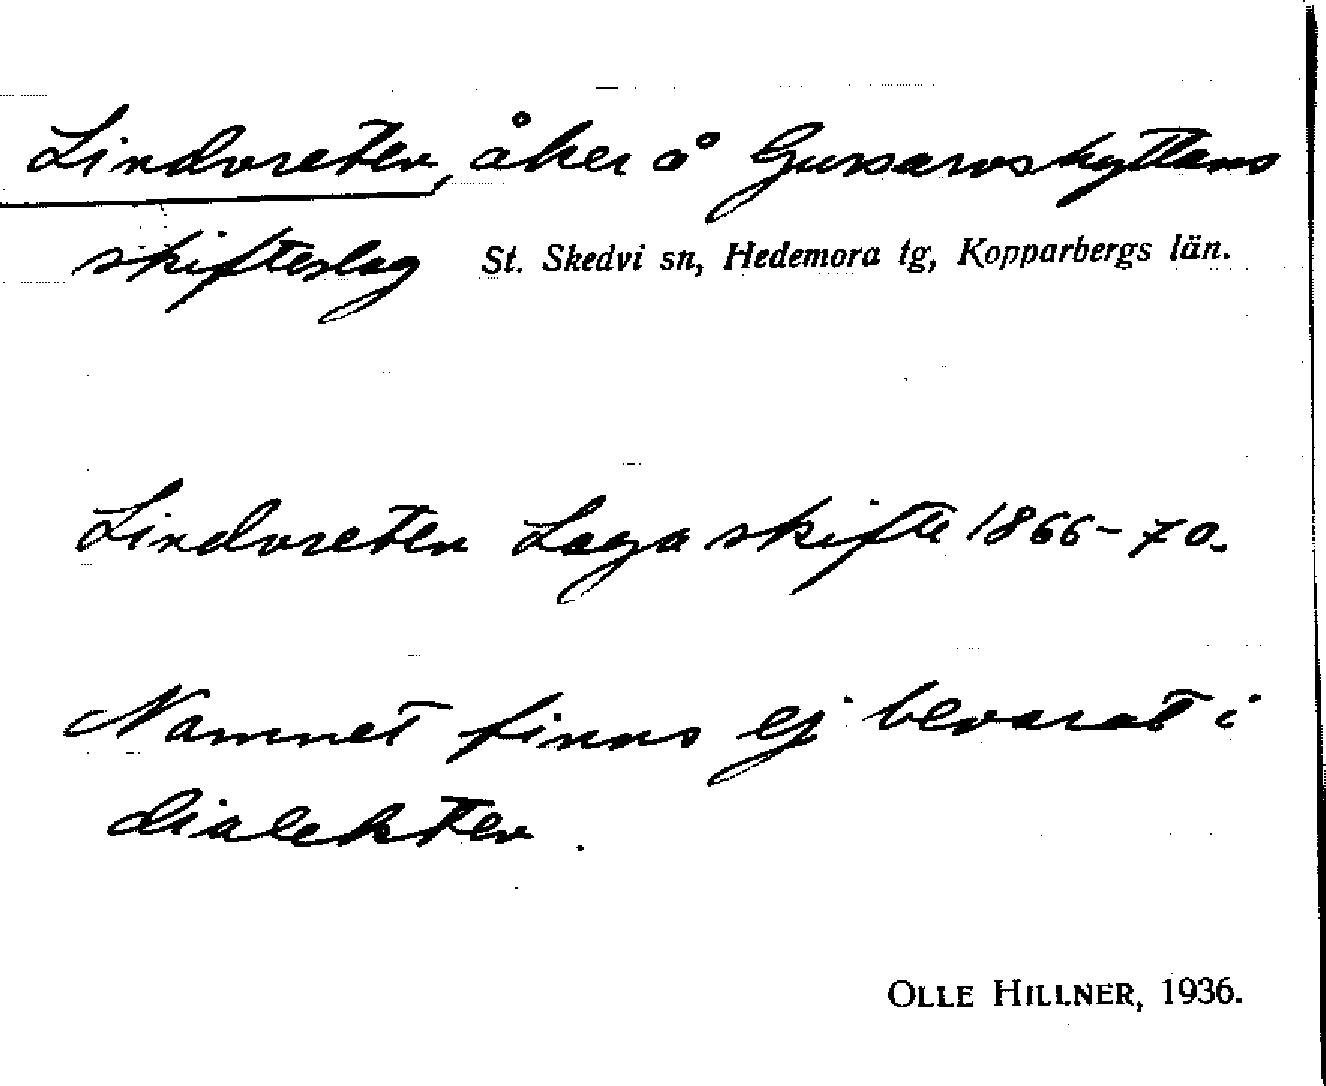 Lindvreten, åker å Gussarvshyttans
skifteslag St. Skedvi sn, Hedemora tg, Kopparbergs län.
Lindvreten Laga skifte 1866-70.
Namnet finns ej bevarat i
dialekten.
OLLE HILLNER, 1936.